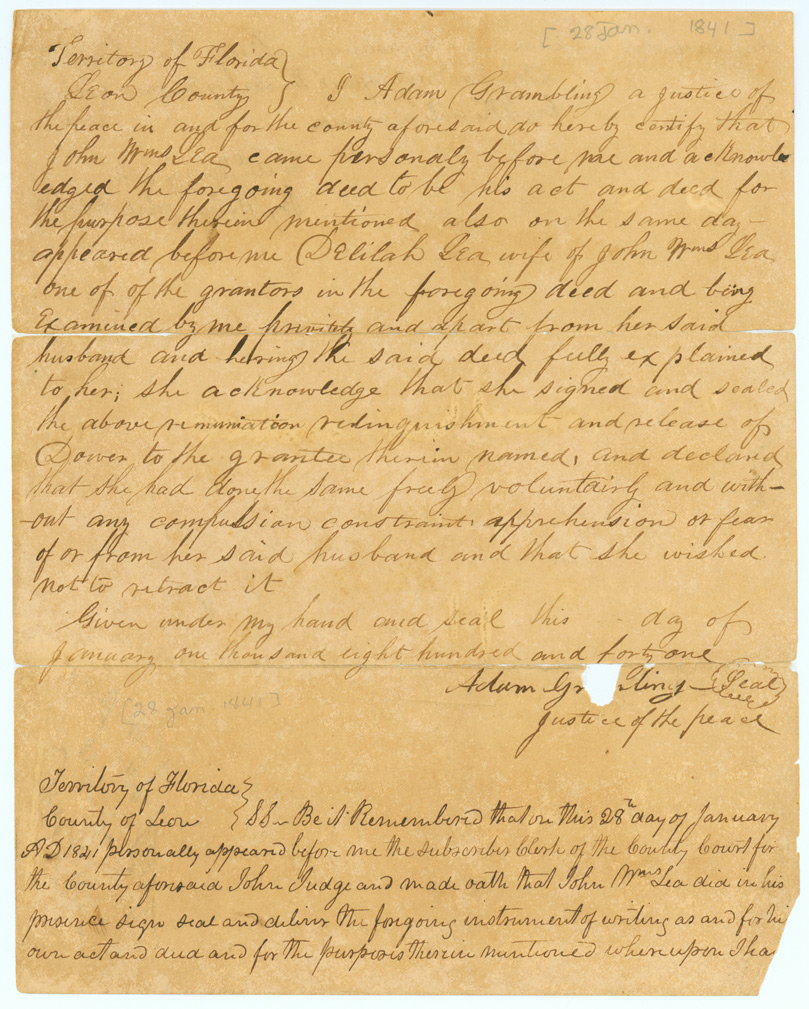 [ 28 Jan. 1841 ]
Territory of Florida }
Leon County } I Adam Grambling a justice of
the peace in and for the county aforesaid do hereby certify that
John Wms Lea came personaly before me and acknowle
edged the foregoing deed to be his act and deed for
the purpose therein mentioned also on the same day -
appeared before me Delilah Lea wife of John Wms Lea
one of of the grantors in the foregoing deed and being
Examined by me and apart from her said
husband and the said deed fully explained
to her; she acknowledge that she signed and sealed
the above relinquishment and release of
Dower to the grantee therein named, and declared
that she had done the same freely voluntairly and with-
-out any compulsion constraint apprehension or fear
of or from her said husband and that she wished
not to retract it
Given under my hand and seal this day of
January one thousand eight hundred and forty one
Adam Gr ling - Seal
Justice of the peace
[28 Jan. 1841]
Territory of Florida }
County of Leon } SS - Be it Remembered that on this 28th day of January
AD 1841 personally appeared before me the subscriber Clerk of the County Court for
the County aforesaid John Judge and made oath that John Wms Lea did in his
presence sign seal and deliver the foregoing instrument of writing as and for hi
own act and deed and for the purposes therein mentioned whereupon I ha